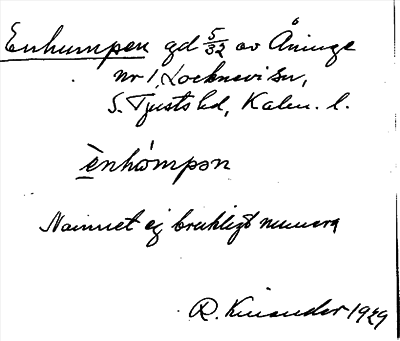 Enhumpen gd 5/32 av Åninge
nr 1, Locknevi sn,
S. Tjusts hd, Kalm. l.
ènhómpən
Namnet ej brukligt numera
R. Kinander 1929